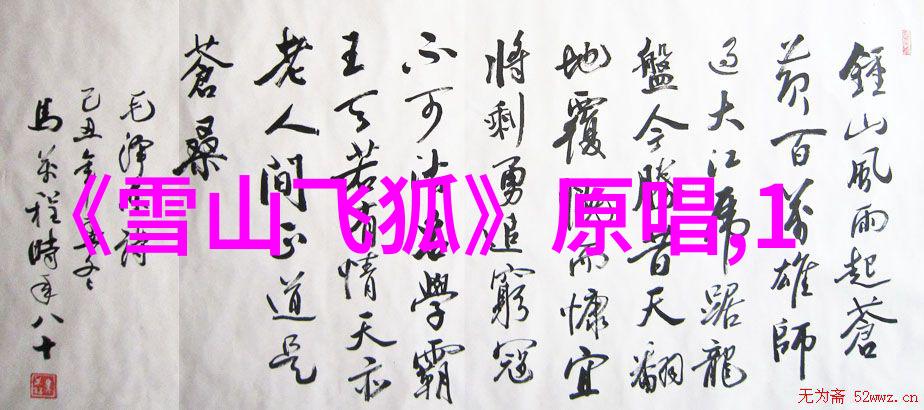 鍾山風雨起蒼
黄百萬雄師
過大江虎踞龍
盤今勝昔天翻
地覆慨而慷宜
將剩勇追窮寇
不可沽名學霸
王天若有情天亦
老人間正道是
蒼桑
毛澤東詩
己丑年
馬萬程時年八十
《雪山飞狐》原唱,1
无为斋 52wwz.cn